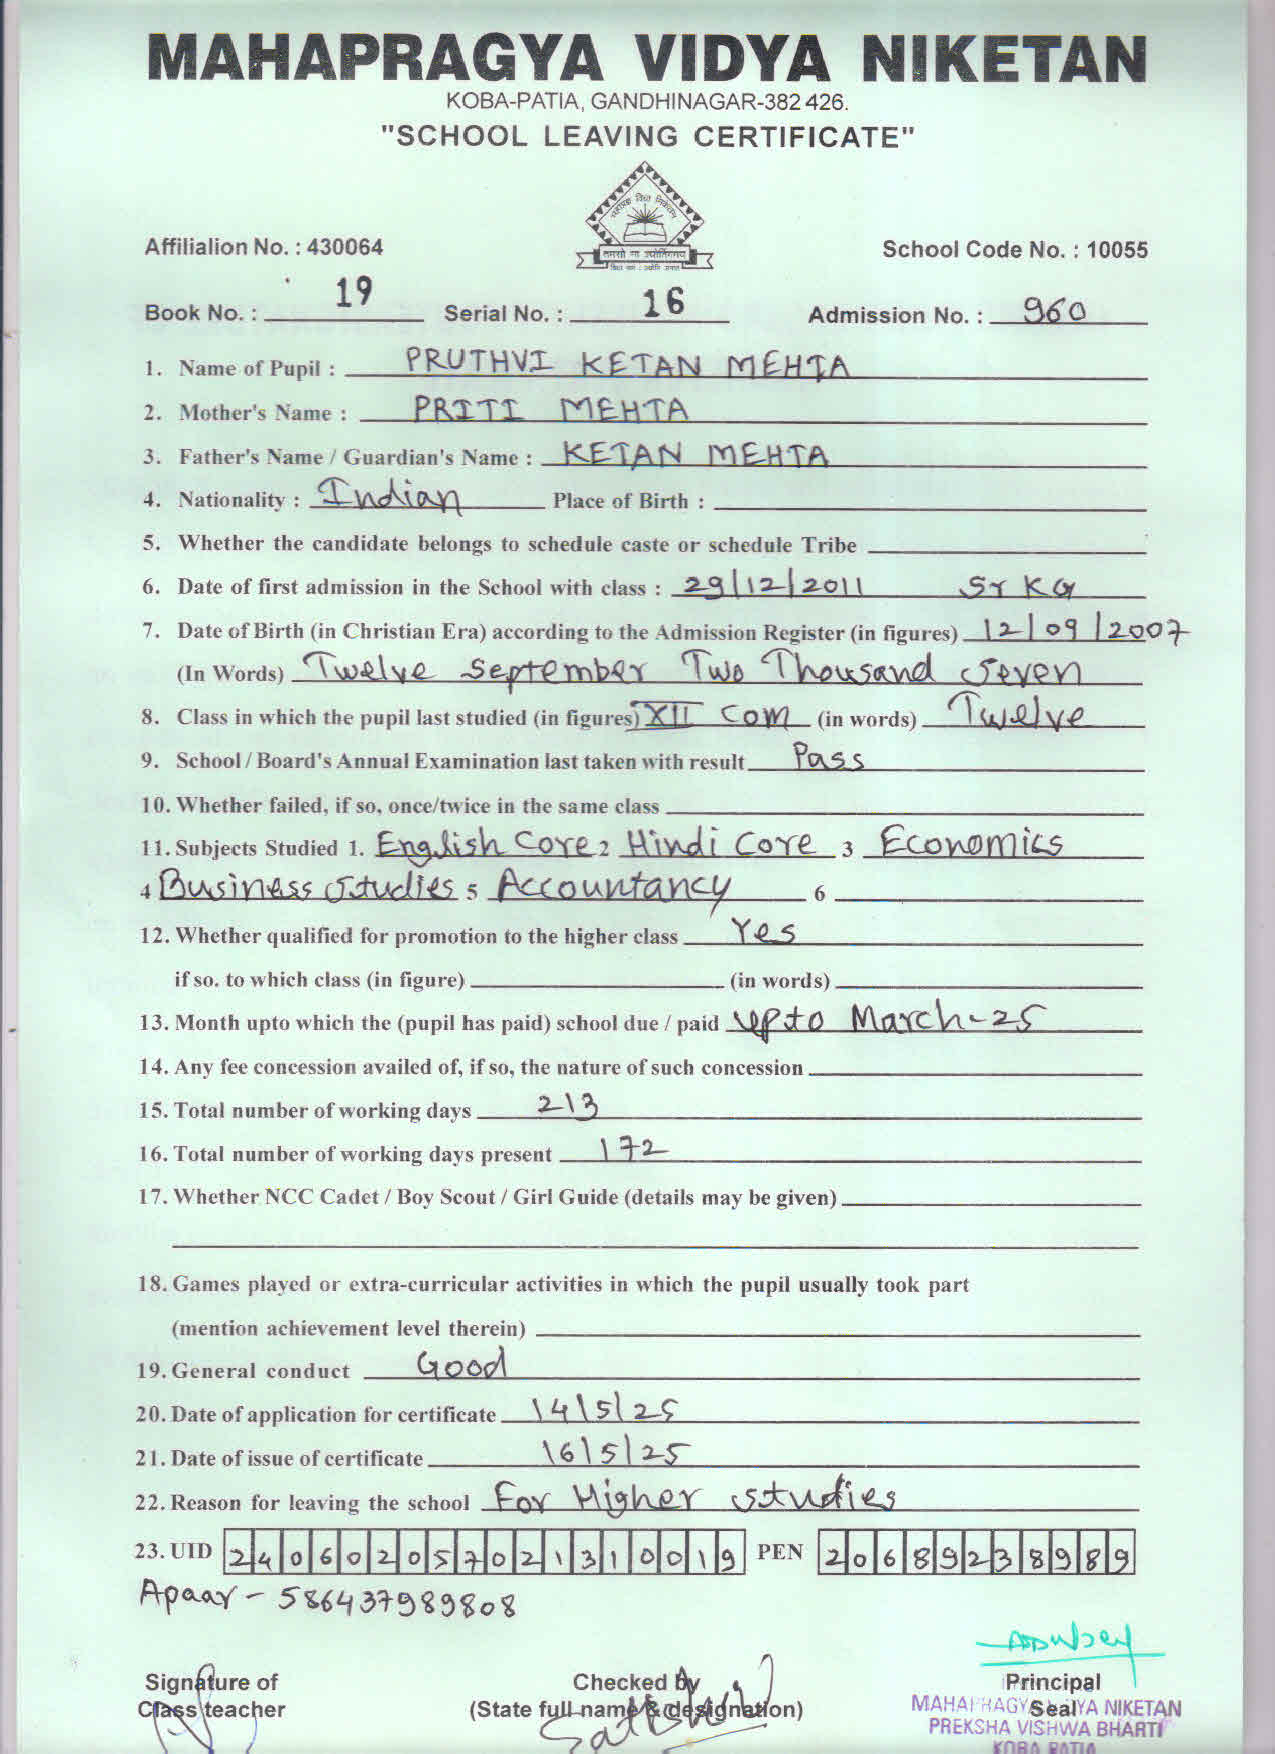 MAHAPRAGYA VIDYA NIKETAN
KOBA-PATIA, GANDHINAGAR-382 426.
"SCHOOL LEAVING CERTIFICATE"
महाप्रज्ञ विद्या निकेतन
तमसो मा ज्योतिर्गमय
Affilialion No. : 430064 School Code No. : 10055
Book No. : 19 Serial No. : 16 Admission No. : 960
1. Name of Pupil : PRUTHVI KETAN MEHTA
2. Mother's Name : PRITI MEHTA
3. Father's Name / Guardian's Name : KETAN MEHTA
4. Nationality : Indian Place of Birth :
5. Whether the candidate belongs to schedule caste or schedule Tribe
6. Date of first admission in the School with class : 29/12/2011 Sr KG
7. Date of Birth (in Christian Era) according to the Admission Register (in figures) 12/09/2007
(In Words) Twelve September Two Thousand Seven
8. Class in which the pupil last studied (in figures) XII Com (in words) Twelve
9. School / Board's Annual Examination last taken with result Pass
10. Whether failed, if so, once/twice in the same class
11. Subjects Studied 1. English Core 2 Hindi Core 3 Economics
4 Business Studies 5 Accountancy 6
12. Whether qualified for promotion to the higher class Yes
if so. to which class (in figure) (in words)
13. Month upto which the (pupil has paid) school due / paid upto March-25
14. Any fee concession availed of, if so, the nature of such concession
15. Total number of working days 213
16. Total number of working days present 172
17. Whether NCC Cadet / Boy Scout / Girl Guide (details may be given)
18. Games played or extra-curricular activities in which the pupil usually took part
(mention achievement level therein)
19. General conduct Good
20. Date of application for certificate 14/5/25
21. Date of issue of certificate 16/5/25
22. Reason for leaving the school For Higher Studies
23. UID 240602057021310019 PEN 20689238989
Apaar - 586437989808
Signature of Checked by Principal
Class teacher (State full name & designation) Seal
MAHAPRAGYA VIDYA NIKETAN
PREKSHA VISHWA BHARTI
KOBA PATIA